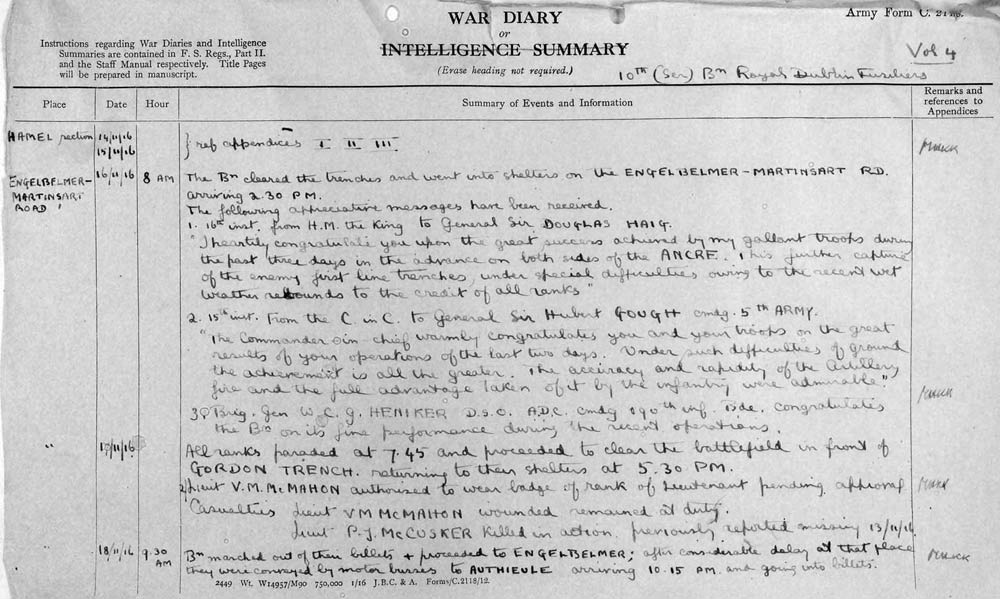 WAR DIARY
or
INTELLIGENCE SUMMARY
(Erase heading not required.)
Army Form C. 2118.
Vol 4
Instructions regarding War Diaries and Intelligence
Summaries are contained in F. S. Regs., Part II.
and the Staff Manual respectively. Title Pages
will be prepared in manuscript.
10th (Ser) Bn Royal Dublin Fusiliers
Place Date Hour Summary of Events and Information Remarks and references to Appendices
HAMEL section 14/11/16
15/11/16 } ref appendices I II III
ENGELBELMER-MARTINSART ROAD 16/11/16 8 AM The Bn cleared the trenches and went into shelters on the ENGELBELMER-MARTINSART RD.
arriving 2.30 PM.
The following appreciative messages have been received.
1. 16th inst. from H.M. the King to General Sir DOUGLAS HAIG.
"I heartily congratulate you upon the great success achieved by my gallant troops during
the past three days in the advance on both sides of the ANCRE. This further capture
of the enemy first line trenches, under special difficulties owing to the recent wet
weather redounds to the credit of all ranks"
2. 15th inst. From the C. in C. to General Sir Hubert GOUGH cmdg. 5th ARMY.
"The Commander in chief warmly congratulates you and your troops on the great
results of your operations of the last two days. Under such difficulties of ground
the achievement is all the greater. The accuracy and rapidity of the Artillery
fire and the full advantage taken of it by the infantry were admirable."
3 Brig. Gen W. C. G. HENIKER D.S.O. A.D.C. cmdg 190th inf. Bde. congratulates
the Bn on its fine performance during the recent operations.
" 17/11/16 All ranks paraded at 7.45 and proceeded to clear the battlefield in front of
GORDON TRENCH. returning to their shelters at 5.30 PM.
2/Lieut V.M. McMAHON authorised to wear badge of rank of Lieutenant pending approval
Casualties Lieut VM McMAHON wounded remained at duty.
Lieut P.J. McCUSKER Killed in action, previously reported missing 13/11/16
" 18/11/16 9.30 AM Bn marched out of their billets + proceeded to ENGELBELMER; after considerable delay at that place
they were conveyed by motor busses to AUTHIEULE arriving 10.15 AM. and going into billets.
2449 Wt. W14957/M90 750,000 1/16 J.B.C. & A. Forms/C.2118/12.